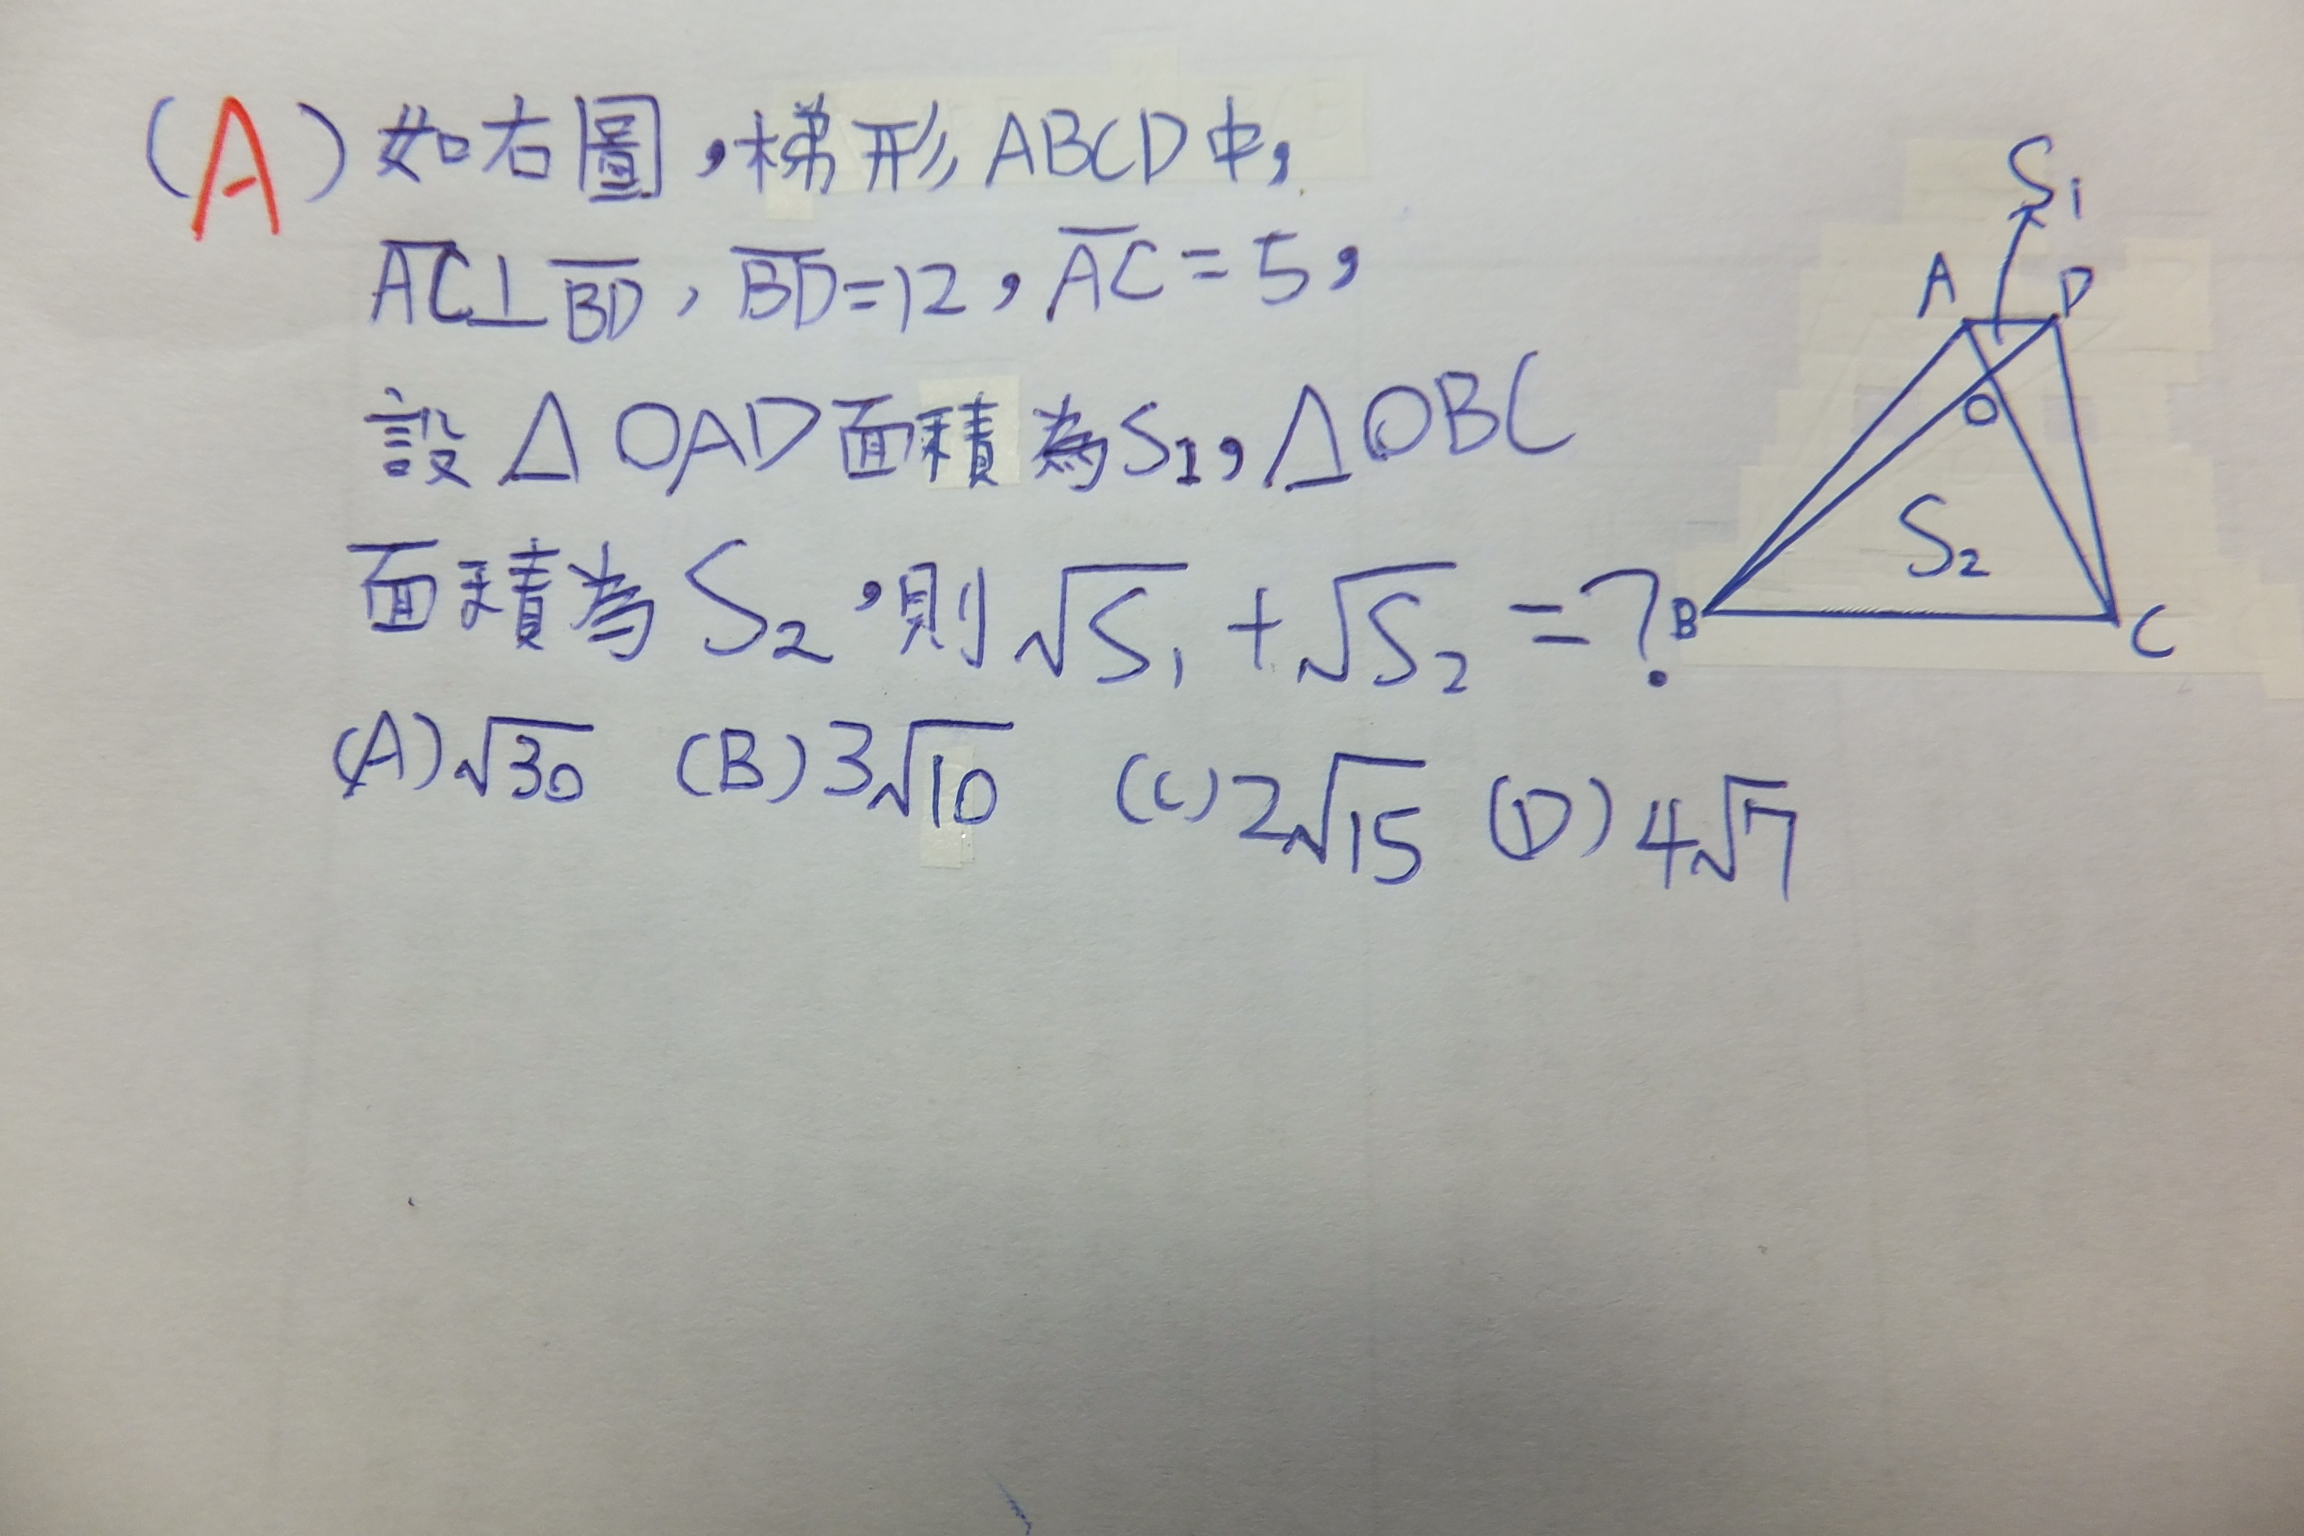 (A) 如右圖,梯形ABCD中,
AC⊥BD, BD=12, AC=5,
設△OAD面積為S1,△OBC
面積為S2,則√S1+√S2=?
(A)√30 (B)3√10 (C)2√15 (D)4√7
S1
A D
O
S2
B C